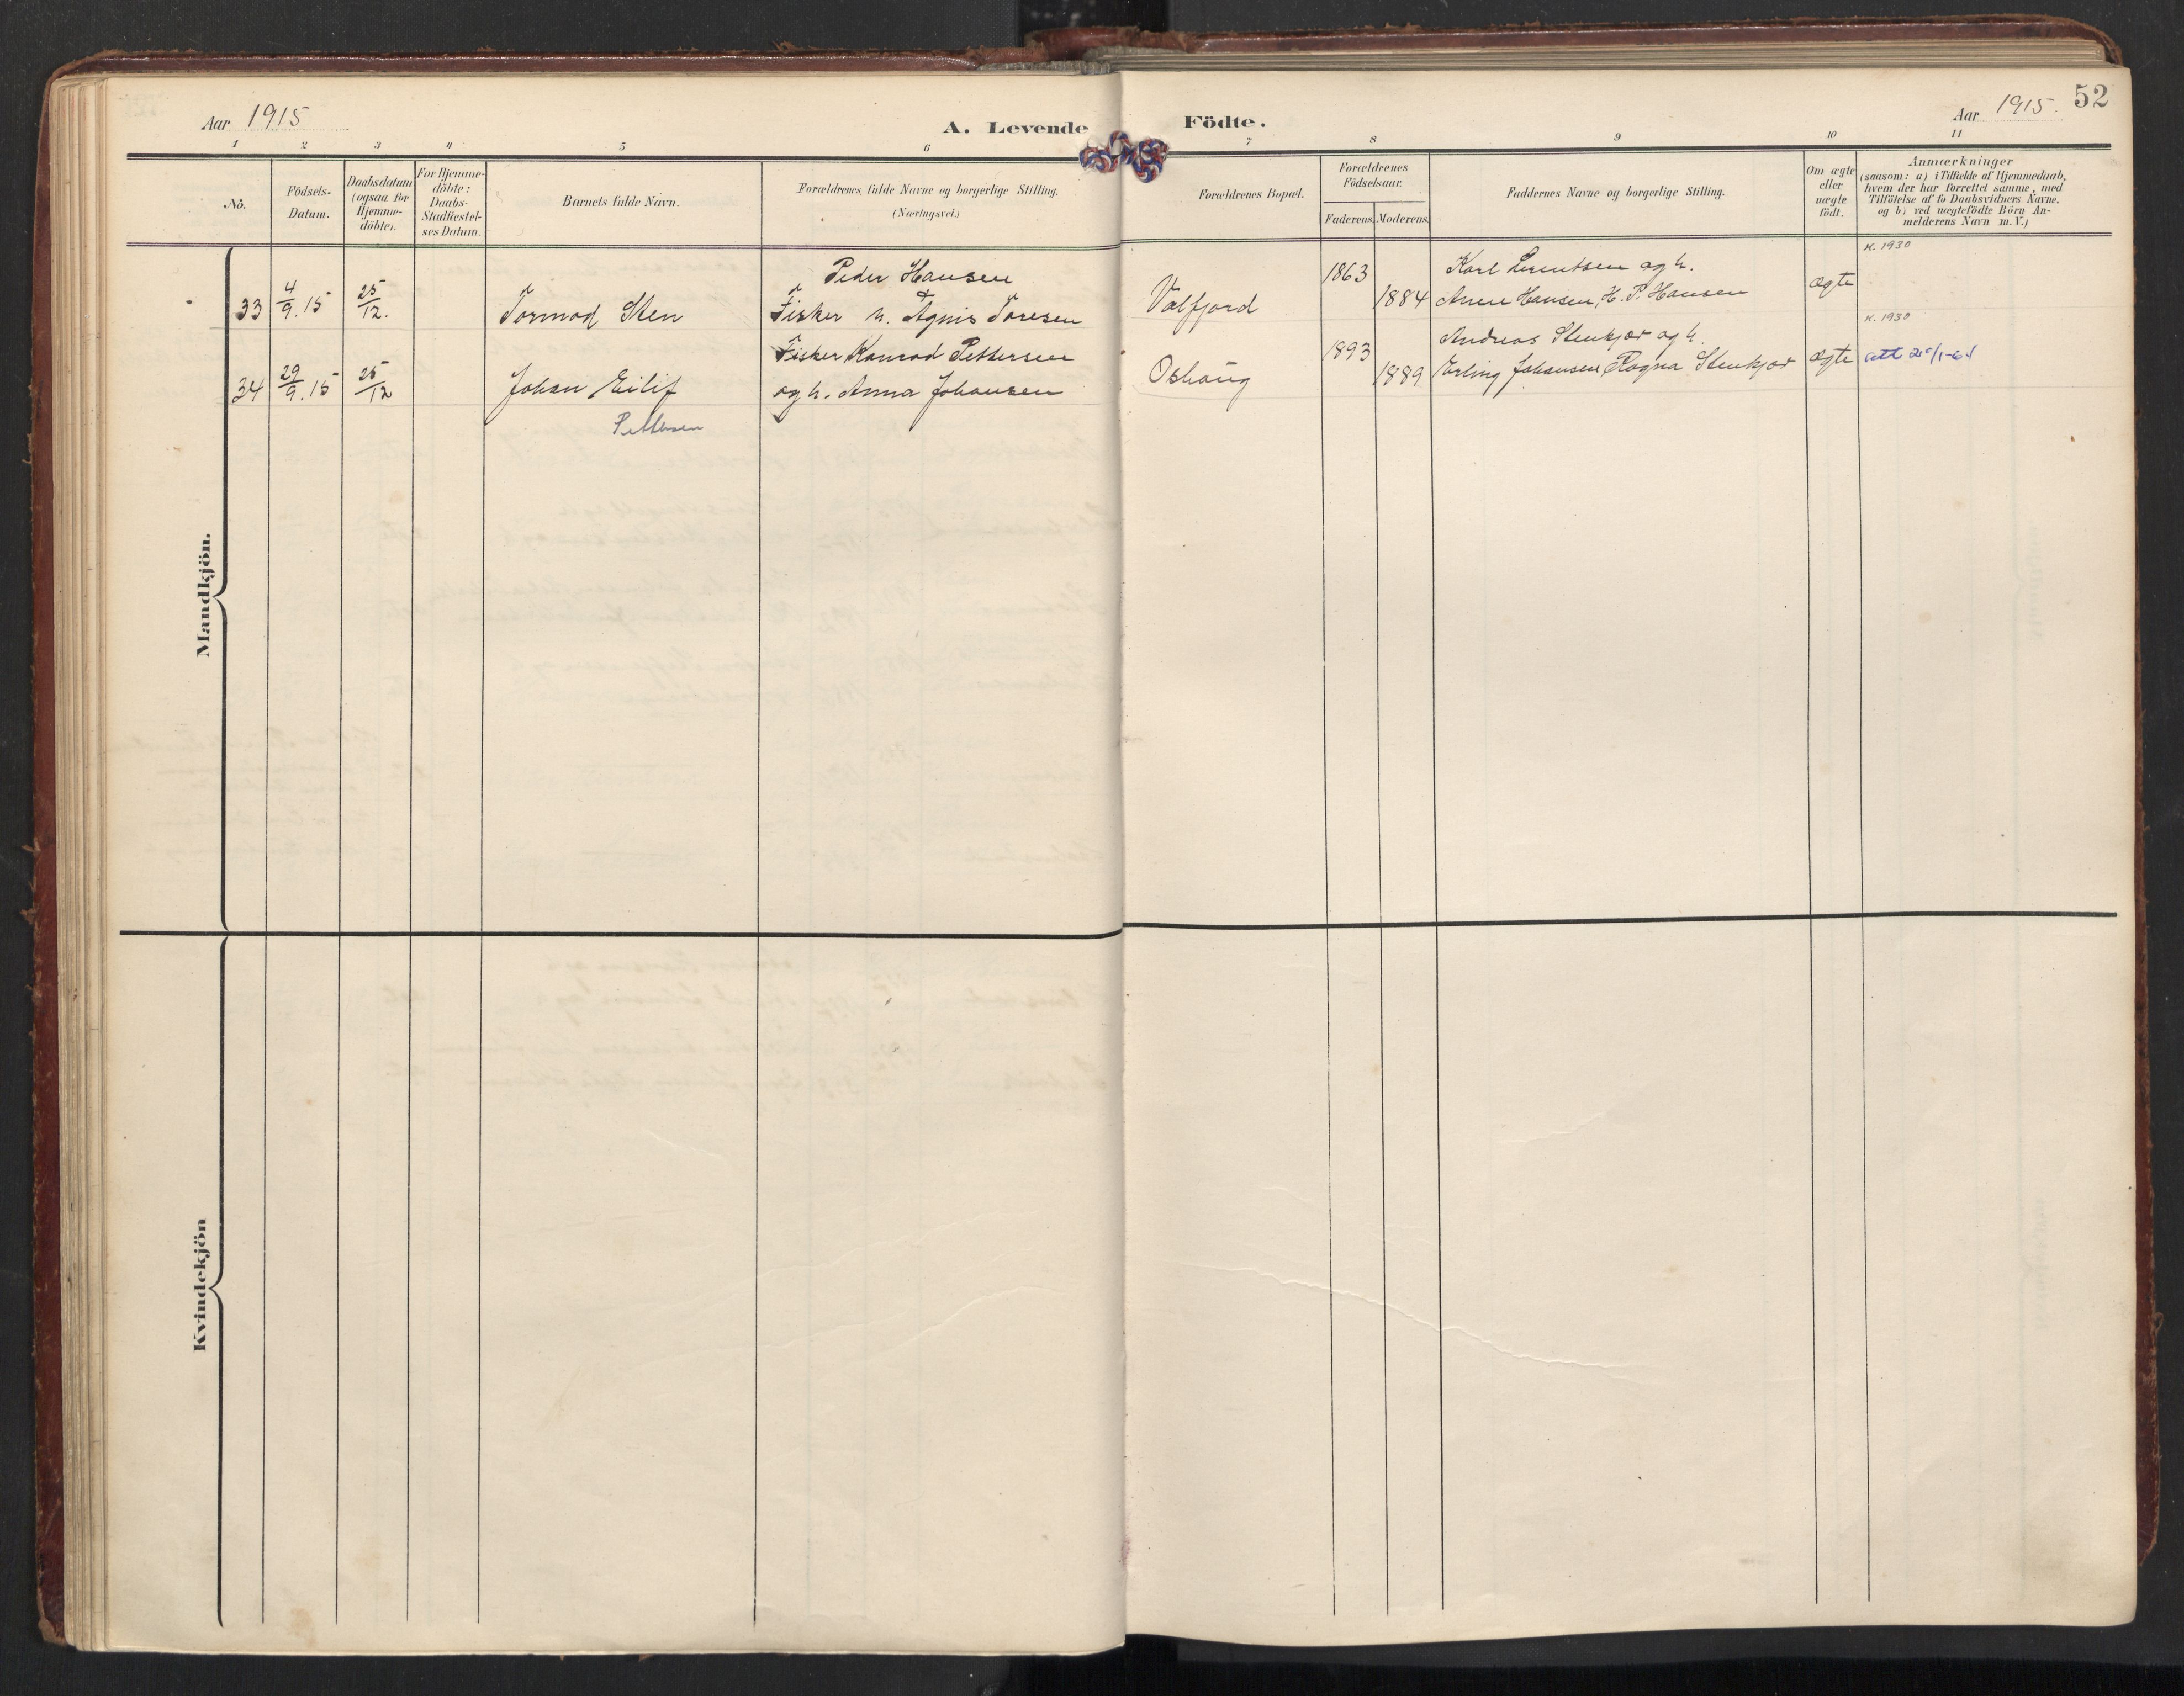 Aar 1915
A. Levende
Födte.
Aar 1915.
52
1 2 3 4 5 6 7 8 9 10 11
No.
Födsels-
Datum.
Daabsdatum
(ogsaa for
Hjemme-
döbte).
For Hjemme-
döbte:
Daabs-
Stadfæstel-
ses Datum.
Barnets fulde Navn.
Forældrenes fulde Navne og borgerlige Stilling.
(Næringsvei.)
Forældrenes Bopæl.
Forældrenes
Födselsaar.
Faderens. Moderens.
Faddernes Navne og borgerlige Stilling.
Om ægte
eller
uægte
födt.
Anmærkninger
(saasom: a) i Tilfælde af Hjemmedaab,
hvem der har forrettet samme, med
Tilföielse af to Daabsvidners Navne,
og b) ved uægtefödte Börn An-
melderens Navn m. V.)
Mandkjön.
33 4/9.15 25/12. Tormod Sten
Peder Hansen
Fisker h. Agnis Toresen
Valfjord
1863
1884
Karl Lerentsen og h.
Anne Hansen, H. P. Hansen
ægte
K. 1930
34 29/9.15 25/12 Johan Eilif
Pettersen
Fisker Konrad Pettersen
og h. Anna Johansen
Oshaug
1893
1889
Andreas Stenkjær og h.
Erling Johansen, Ragna Stenkjær
ægte
K. 1930
att. 25/1-61
Kvindekjön